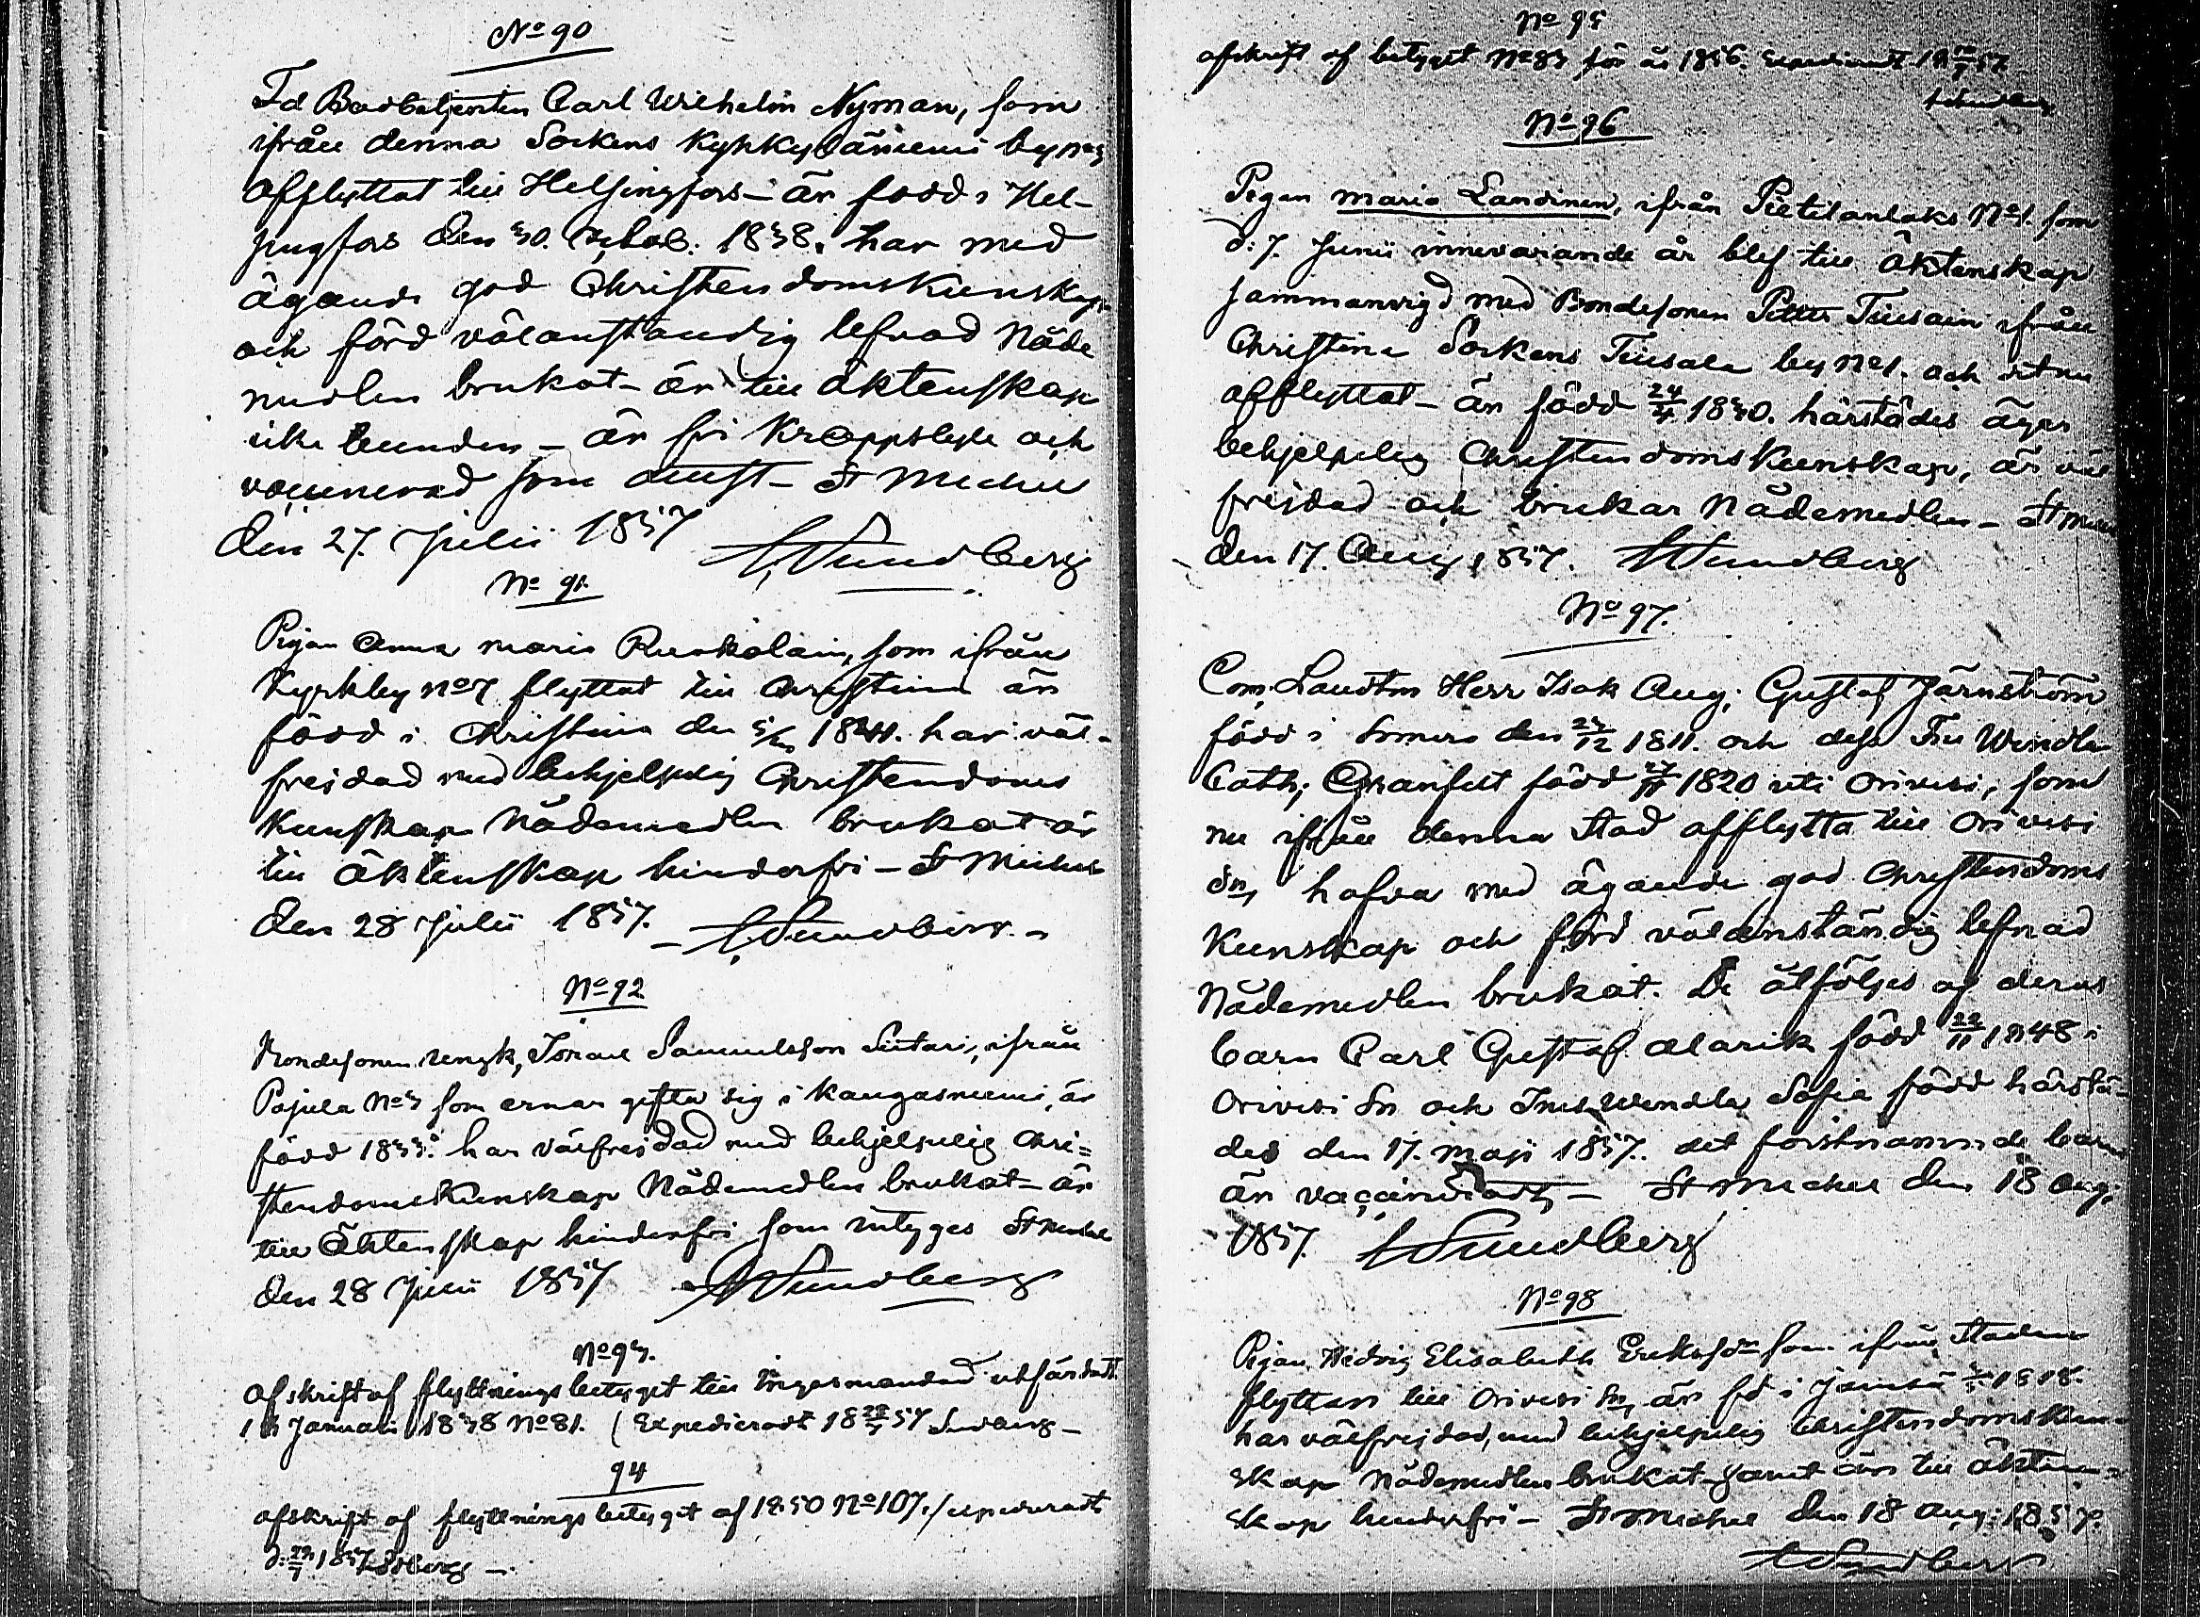 No 90
Fd Badbetjenten Carl Wilhelm Nyman, som
ifrån denna Sockens Kyrkyläniemi by No 3
afflyttat till Helsingfors – är född i Hel-
singfors den 30. 1838. har med
ägande god Christendomskunskap
och förd välanständig lefnad Nåde
medlen brukat – är till äktenskap
icke bunden – är fri Kroppslyte och
vaccinerad som attest – St Michel
den 27. Julii 1857 Sundberg
No 91.
Pigan Anna Maria Ruokolain, som ifrån
Kyrkby No 7 flyttat till Christina är
född i Christina den 1841. har väl-
frejdad med behjelpelig Christendoms
Kunskap Nådemedlen brukat är
till äktenskap hinderfri – St Michel
den 28 Julii 1857. Sundberg
No 92
Bondesonen Israel Samuelsson Siitari, ifrån
Pajula No 3 som ernar gifta sig i Kangasniemi, är
född 1833. har välfrejdad med behjelpelig Chri=
stendomsKunskap Nådemedlen brukat – är
till Äktenskap hinderfri som intyges St Michel
den 28 Julii 1857 Sundberg
No 93.
Afskrift af flyttningsbetyget till Ingermanland utfärdadt
Januari 1838 No 81. (Expedieradt 18 28/7 57 Sundberg –
94
afskrift af flyttningsbetyget af 1850 No 107. / expedieradt
d: 1857 Sdberg –
No 95
afskrift af betyget No 83 för år 1856. Expedieradt 18 57
Sundberg
No 96
Pigan Maria Landinen, ifrån Pietilanlaks No 1. som
d: 7. Junii innevarande år blef till Äktenskap
sammanvigd med Bondesonen Petter Tiusain ifrån
Christina Sockens Tiusala by No 1. och dit nu
afflyttat – är född 24/4 1830. härstädes äger
behjelpelig Christendomskunskap, är väl
frejdad och brukar Nådemedlen – St Michel
den 17. Aug 1857. Sundberg
No 97.
Com. Landtm Herr Isak Aug; Gustaf Järnström
född i Somero den 1811. och dess Fru Wendla
Cath; Granfelt född 1820 uti Orivesi, som
nu ifrån denna Stad afflytta till Orivesi
Sn, hafva med ägande god Christendoms
Kunskap och förd välanständig lefnad
Nådemedlen brukat. De åtföljes af deras
barn Carl Gustaf Alarik född 22/11 1848 i
Orivesi Sn och Ines Wendla Sofia född härstä-
des den 17. Maji 1857. det förstnämnde barn
är vaccineradt, – St Michel den 18 Aug;
1857. Sundberg
No 98
Pigan Hedvig Elisabeth Eriksdr som ifrån Staden
flyttar till Orivesi Sn, är fd i Jämsä 1818.
har välfrejdad, med behjelpelig Christendomskun-
skap Nådemedlen brukat samt är till äkten=
skap hinderfri – St Michel den 18 Aug: 1857.
Sundberg